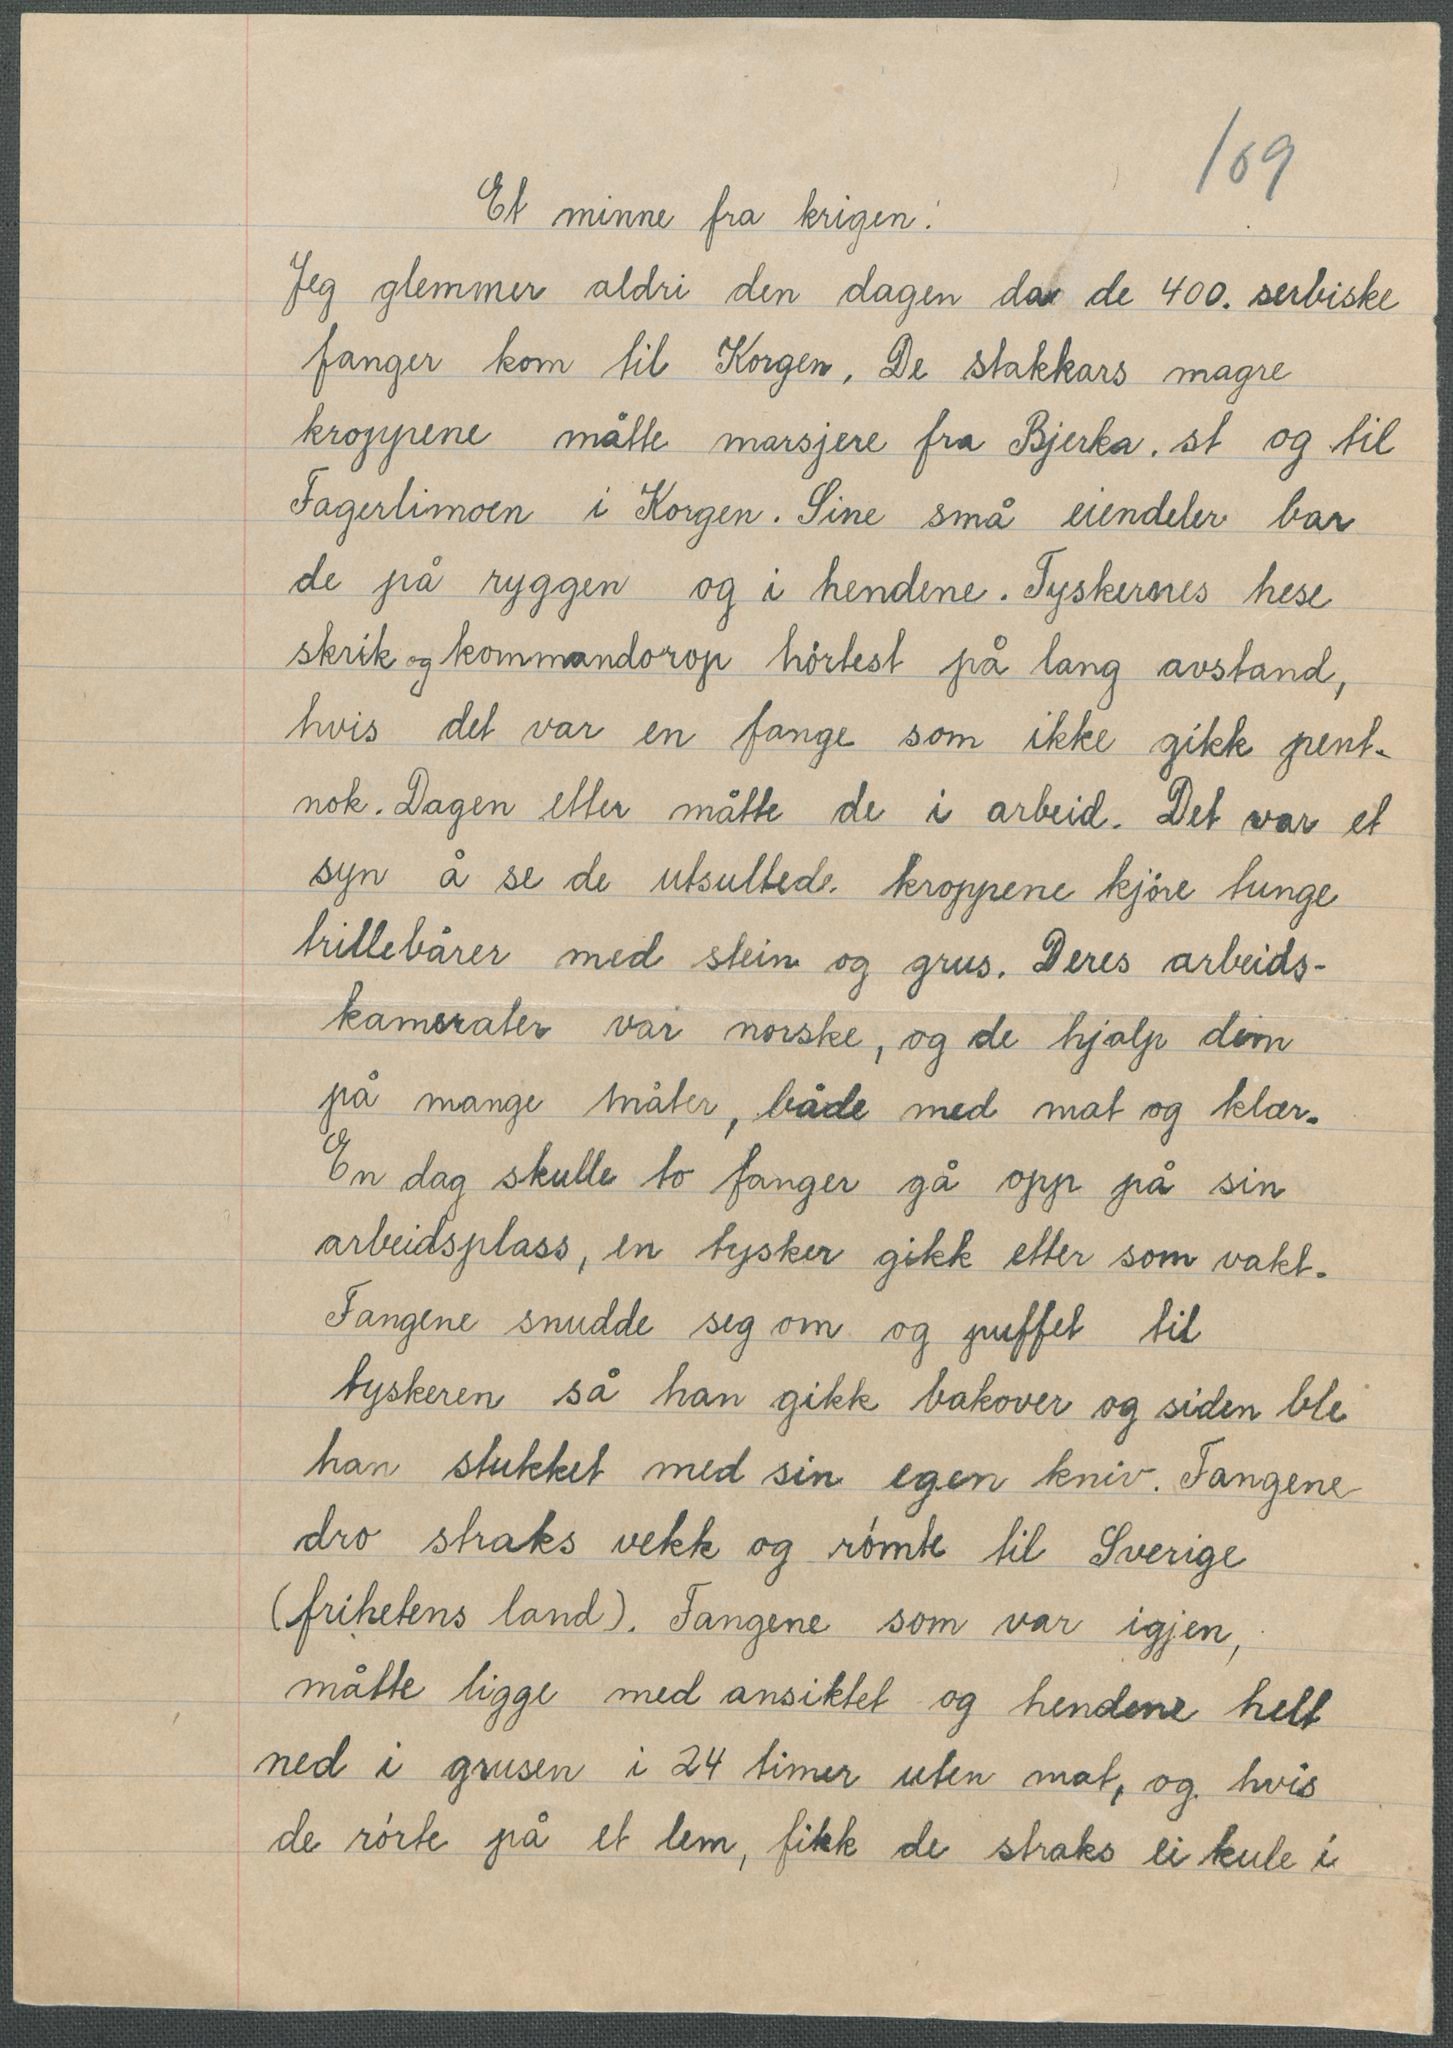 169
Et minne fra krigen!
Jeg glemmer aldri den dagen da de 400. serbiske
fanger kom til Korgen. De stakkars magre
kroppene måtte marsjere fra Bjerka. st og til
Fagerlimoen i Korgen. Sine små eiendeler bar
de på ryggen og i hendene. Tyskernes hese
skrik og kommandorop hörtest på lang avstand,
hvis det var en fange som ikke gikk pent
nok. Dagen etter måtte de i arbeid. Det var et
syn å se de utsultede kroppene kjöre tunge
trillebårer med stein og grus. Deres arbeids-
kamerater var norske, og de hjalp dem
på mange måter, både med mat og klær.
En dag skulle to fanger gå opp på sin
arbeidsplass, en tysker gikk etter som vakt.
Fangene snudde seg om og puffet til
tyskeren så han gikk bakover og siden ble
han stukket med sin egen kniv. Fangene
dro straks vekk og römte til Sverige
(frihetens land). Fangene som var igjen,
måtte ligge med ansiktet og hendene helt
ned i grusen i 24 timer uten mat, og hvis
de rörte på et lem, fikk de straks ei kule i